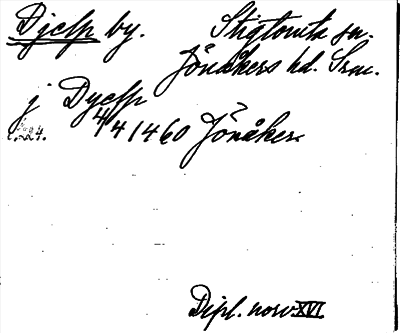 Djelp by. Stigtomta sn.
Jönåkers hd. Srm.
j Dyelp
4/4 1460 Jönåker.
Dipl. norv. XVI.